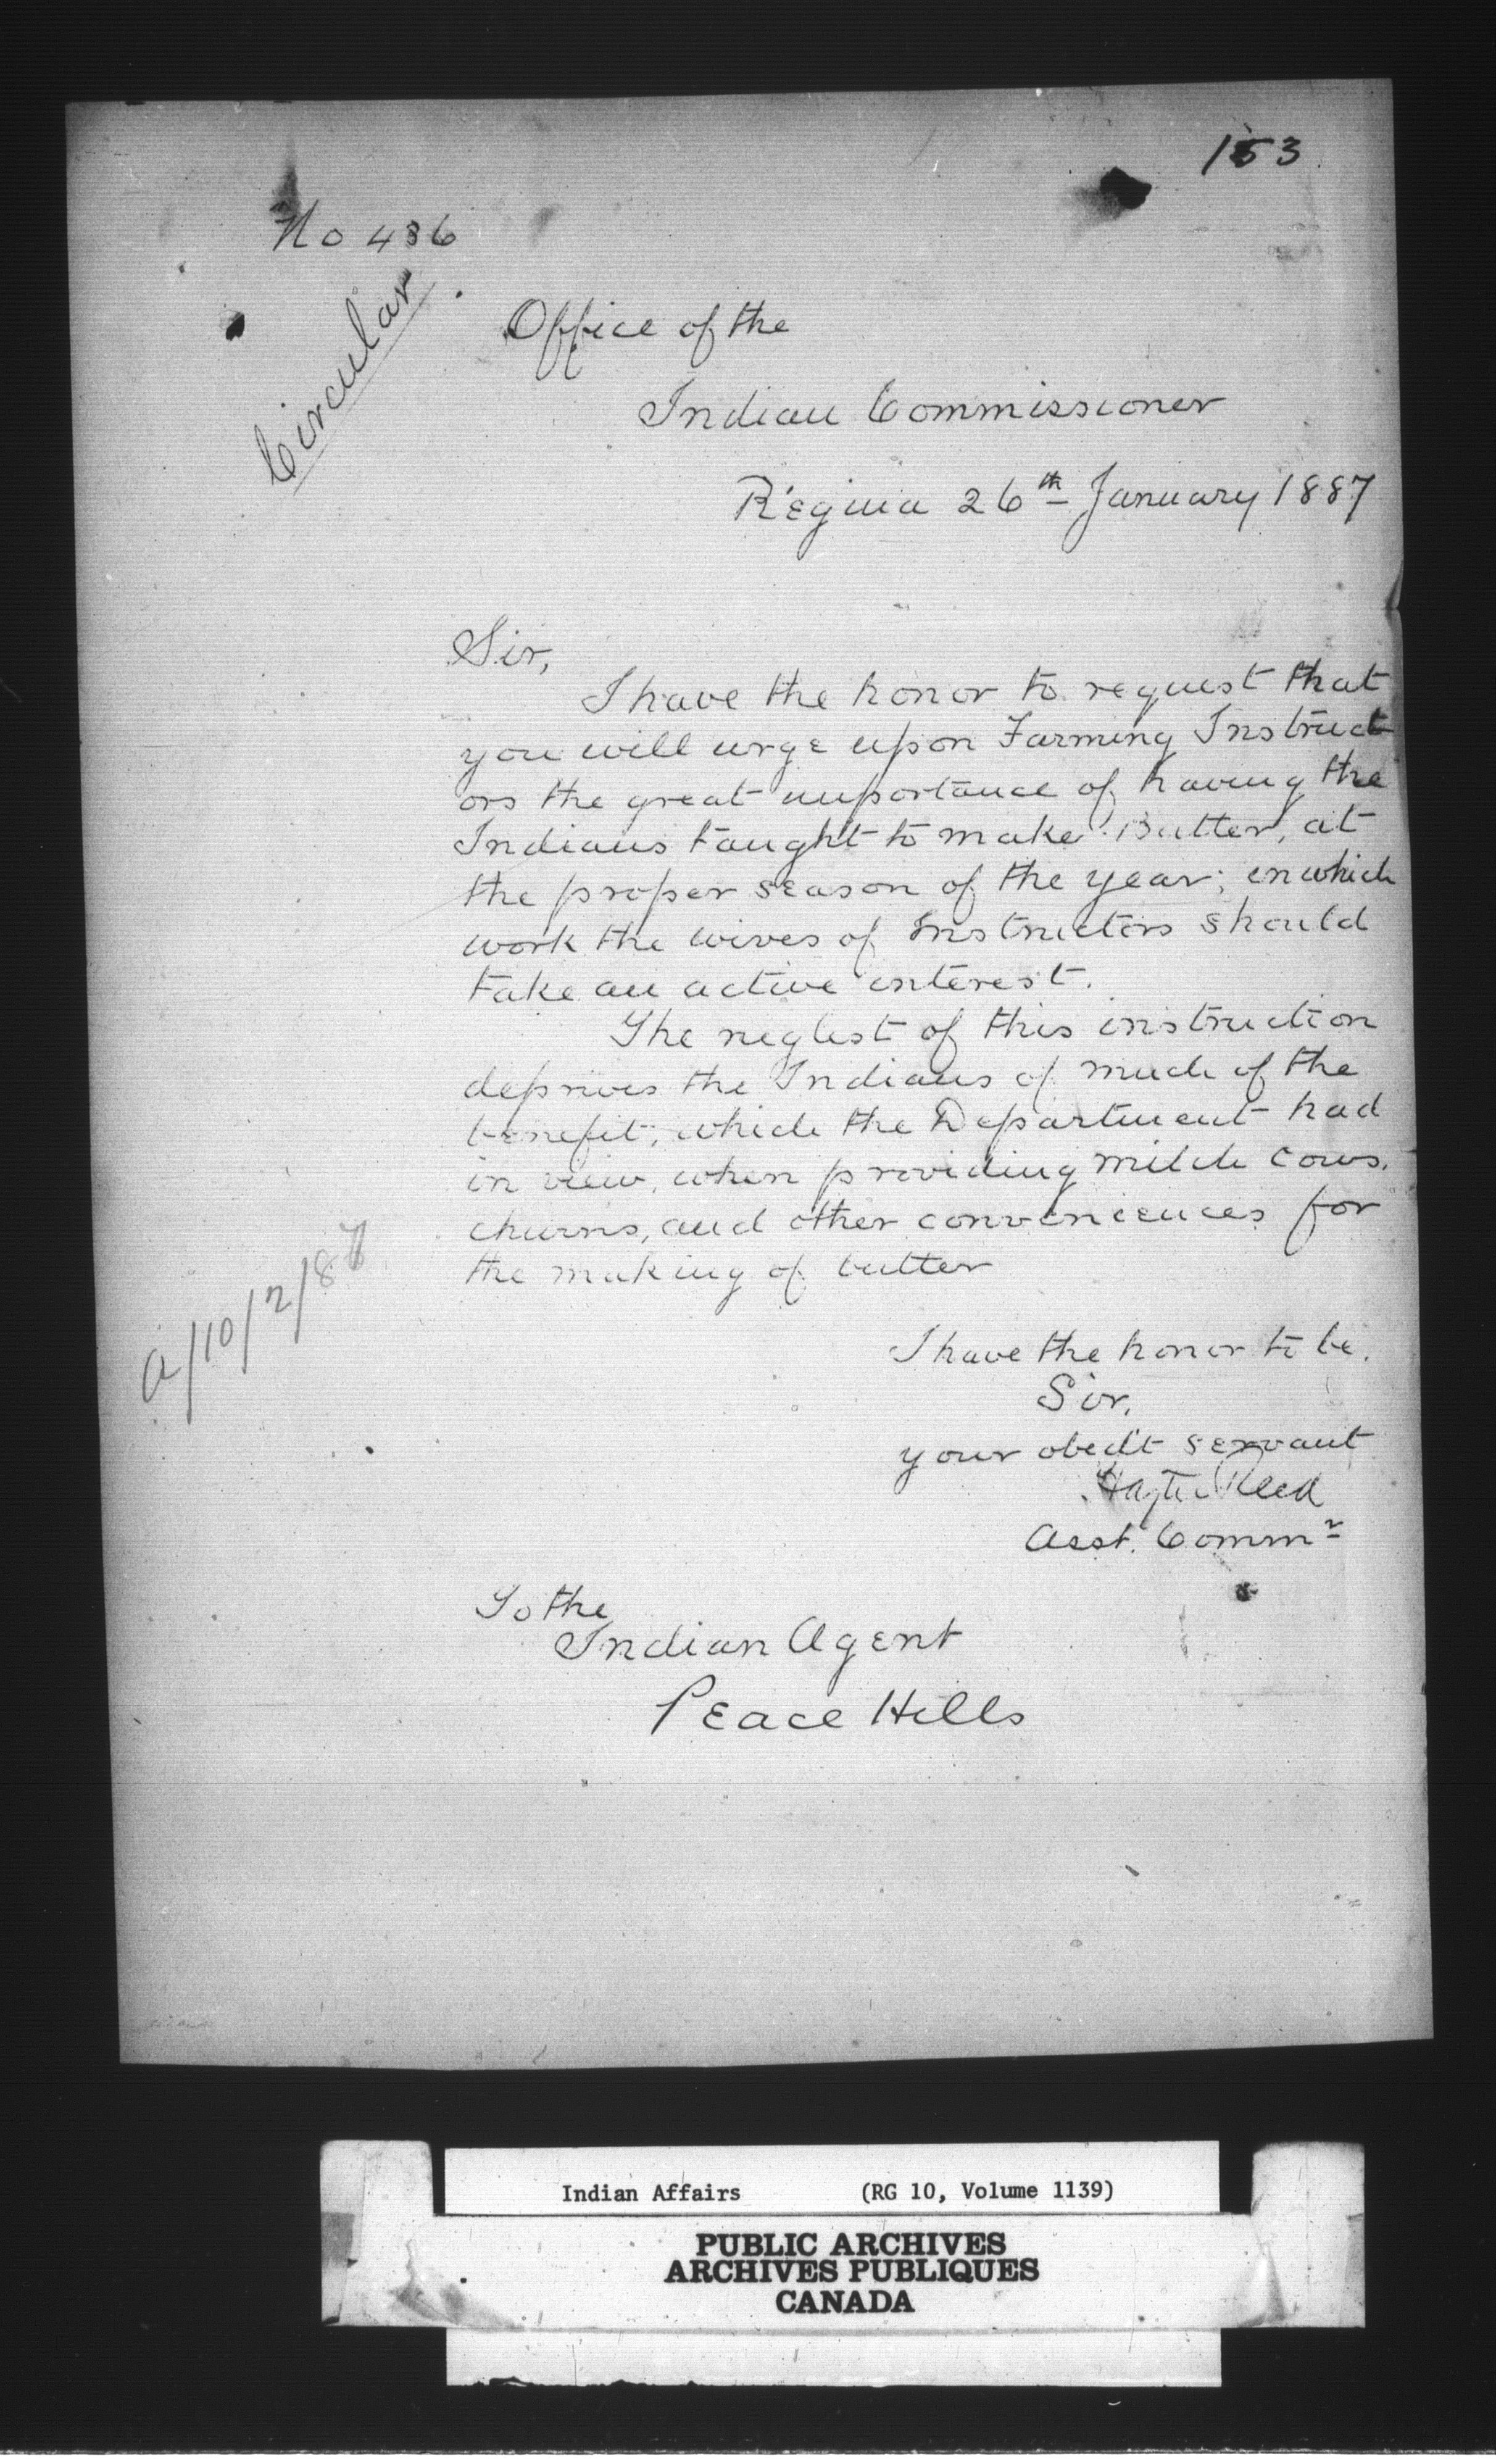 153
No 436
Circular
Office of the
Indian Commissioner
Regina 26th January 1887
Sir,
I have the honor to request that
you will urge upon Farming Instruct
ors the great importance of having the
Indians taught to make Butter, at
the proper season of the year; in which
work the wives of Instructors should
take an active interest.
The neglect of this instruction
deprives the Indians of much of the
benefit, which the Department had
in view, when providing milch cows,
churns, and other conveniences for
the making of butter
a/10/2/87
I have the honor to be,
Sir,
your obedt servant
Hayter Reed
Asst. Commr
To the
Indian Agent
Peace Hills
Indian Affairs (RG 10, Volume 1139)
PUBLIC ARCHIVES
ARCHIVES PUBLIQUES
CANADA